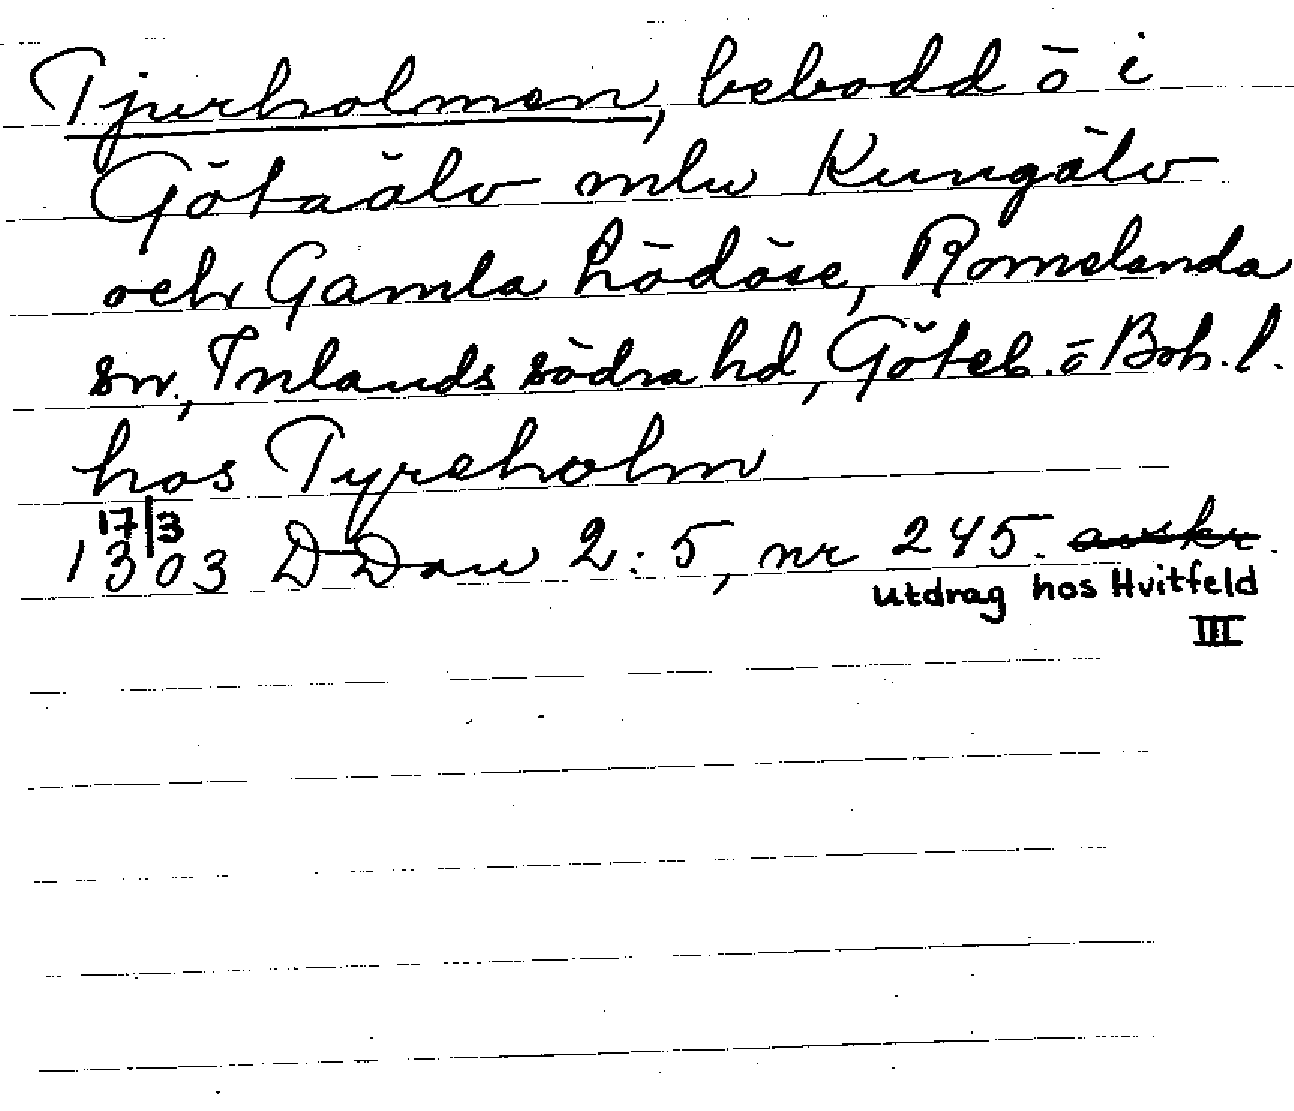 Tjurholmen, bebodd ö i
Götaälv mlw Kungälv
och Gamla Lödöse, Romelanda
sn., Inlands södra hd, Göteb. o Boh. l.
hos Tyreholm
17/3
1303 D Dan 2:5, nr 245. avskr.
utdrag hos Hvitfeld
III